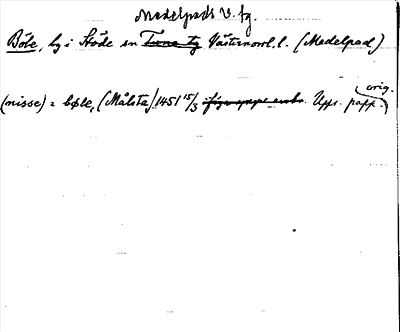 Medelpads V. tg.
Böle, by i Stöde sn Tuna tg Västernorrl. l. (Medelpad)
orig.
(nisse) i bøle, (Målsta) 1451 15/3 Upps. papp.)